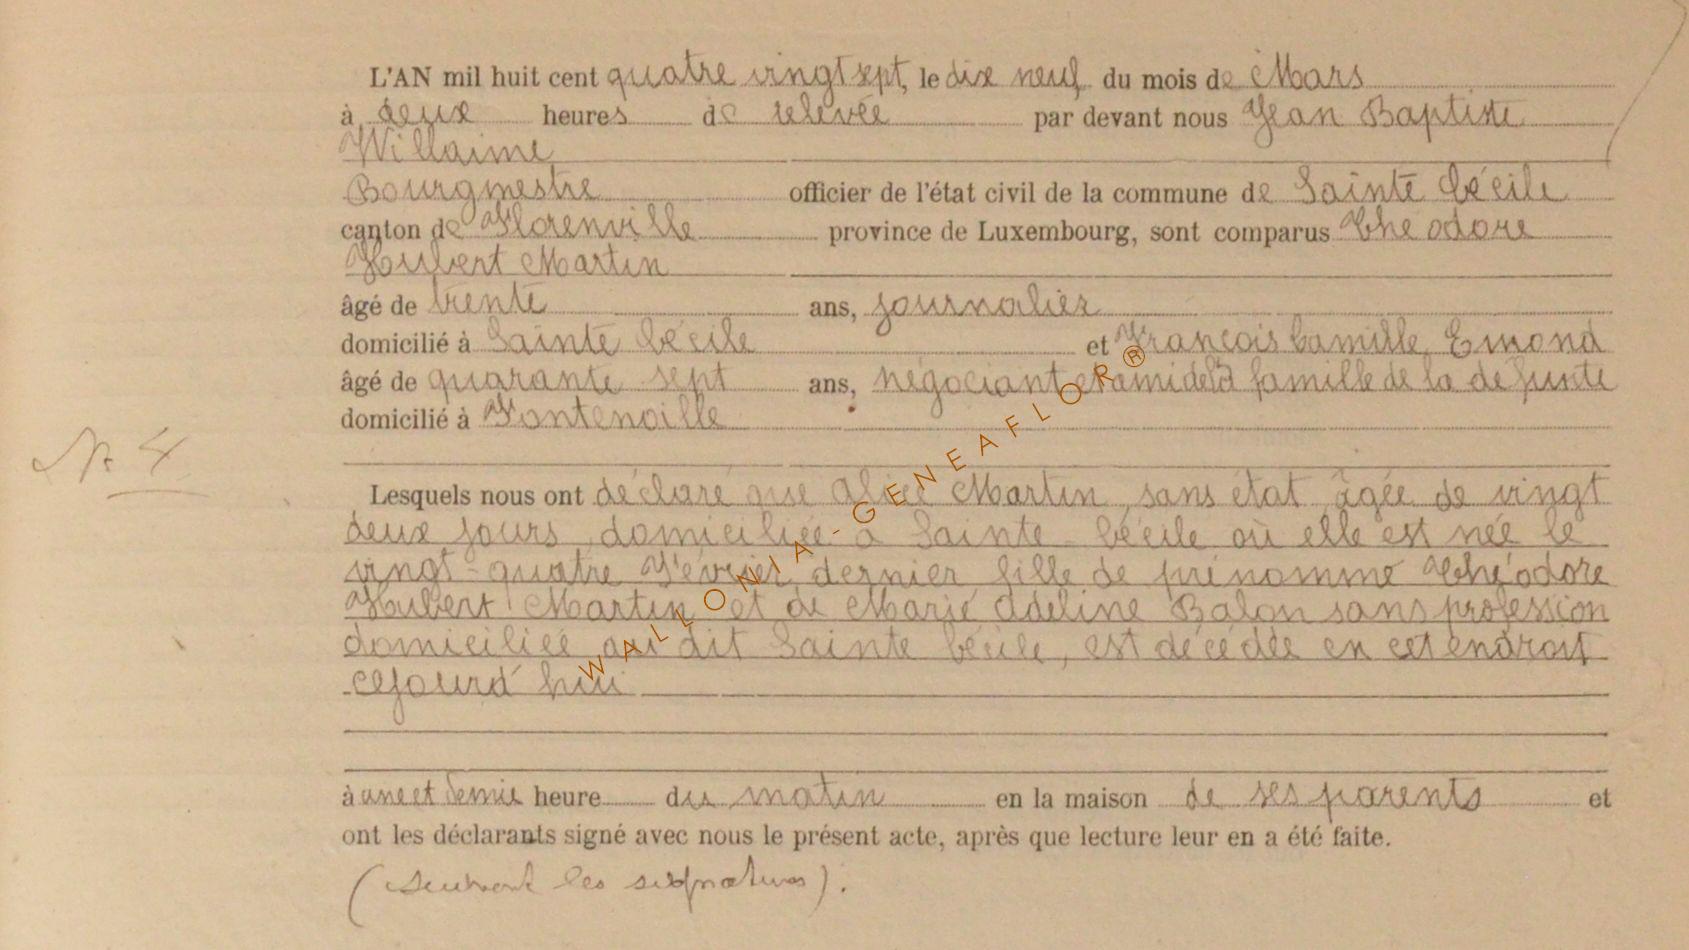 L'AN mil huit cent quatre vingt sept, le dix neuf du mois de Mars
à deux heures de relevée par devant nous Jean Baptiste
Willaime
Bourgmestre officier de l'état civil de la commune de Sainte Cécile
canton de Florenville province de Luxembourg, sont comparus Théodore
Hubert Martin
âgé de trente ans, journalier
domicilié à Sainte Cécile et François Camille Emond
âgé de quarante sept ans, négociant et ami de la famille de la défunte
domicilié à Fontenoille
N. 4
Lesquels nous ont déclaré que Alice Martin, sans état âgée de vingt
deux jours, domiciliée à Sainte-Cécile où elle est née le
vingt-quatre Février dernier fille de prénommé Théodore
Hubert Martin et de Marie Adeline Balon sans profession
domiciliée au dit Sainte Cécile, est décédée en cet endroit
cejourd'hui
à une et demie heure du matin en la maison de ses parents et
ont les déclarants signé avec nous le présent acte, après que lecture leur en a été faite.
(Suivent les signatures).
WALLONIA-GENEAFLOR®